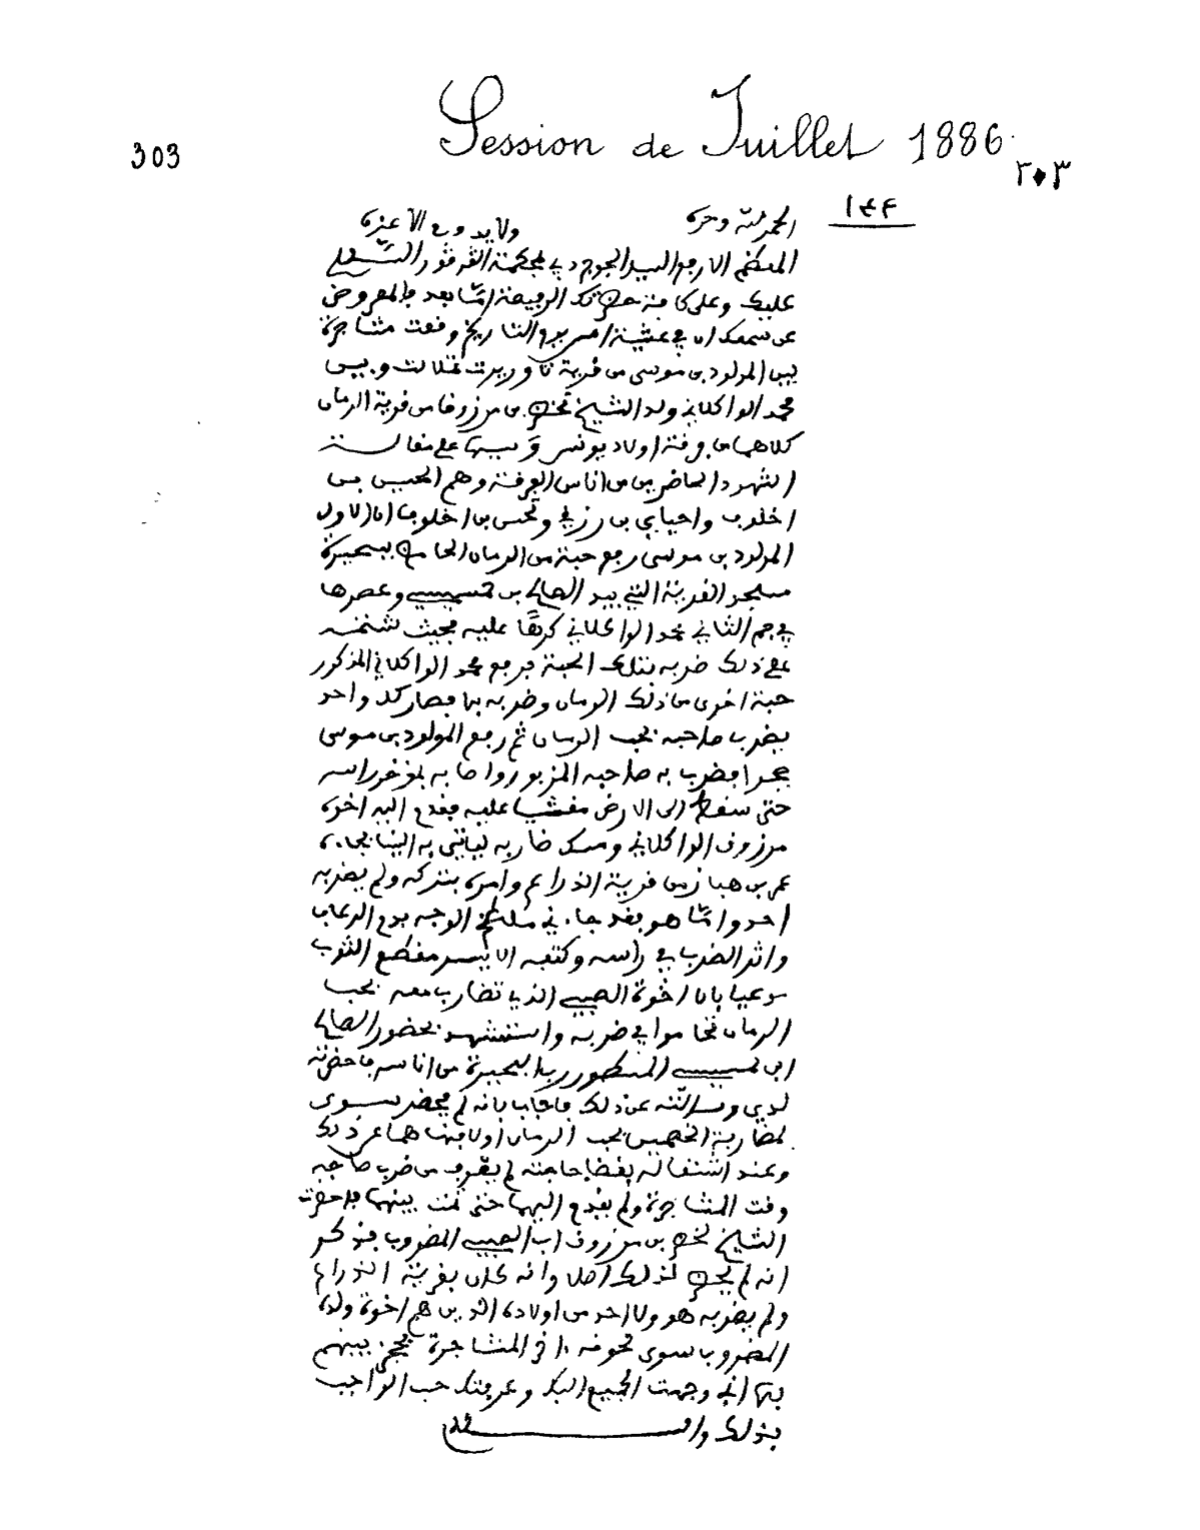 Session de Juillet 1886
303
٣٠٣
١٤٤
الحمد لله وحده ولا يدوم الا عزه
المعظم الارفع السيد البوج دي بمحكمة القرفور السلام
عليك وعلى كافة حضرتك الرفيعة امّا بعد فالمعروض
عن سمعك ان في عشية امس يوم التاريخ وقعت مشاجرة
بين المولود بن موسى من قرية تاوريرت ثلالت وبين
محمد الواكلاني ولد الشيخ لخضر بن مرزوق من قرية الرمان
كلاهما من فرقة اولاد يونس وسببها على مقالة
الشهود الحاضرين من اناس الفرقة وهم الحسين بن
اخلوف واحيابي بن رزيق ولحسن بن اخلوف ان الاول
المولود بن موسى رفع حبة من الرمان الحامض ببحيرة
مسجد القرية التي بيد الصالح بن خميسي وعصرها
في فم الثاني محمد الواكلاني كرها عليه فحيث شتمه
على ذلك ضربه بتلك الحبة فرفع محمد الواكلاني المذكور
حبة اخرى من ذلك الرمان وضربه بها فصار كل واحد
يضرب صاحبه بحب الرمان ثم رفع المولود بن موسى
حجرا فضرب به صاحبه المزبور واصابه بمؤخر راسه
حتى سقط الى الارض مغشيا عليه فقدم اليه اخوه
مرزوق الواكلاني ومسك ضاربه ليأتي به الينا فجاءه
عمر بن هباز من قرية الذراع وامره بتركه ولم يضربه
احد وامّا هو فقد جاءني ملطخ الوجه بدم الرعاف
واثر الضرب في راسه وكتفه الايسر مقطع الثوب
مدعيا بان اخوة الصبي الذي تضارب معه بحب
الرمان قاموا في ضربه واستشهد بحضور الصالح
ابن خميسي المسطور رب البحيرة من اناسه فاحضرته
لدي وسألته عن ذلك فاجاب بانه لم يحضر سوى
لمضاربة الخصمين بحب الرمان اولا فنهاهما عن ذلك
وعند اشتغاله بقضا حاجته لم يعرف من ضرب صاحبه
وقت المشاجرة ولم يقدم اليهما حتى تمت بينهما فاحضرت
الشيخ لخضر بن مرزوق اب الصبي المضروب فذكر
انه لم يحضر لذلك اصلا وانه كان بقرية الذراع
ولم يضربه هو ولا احد من اولاده الذين هم اخوة ولده
المضروب سوى لحوقه في المشاجرة فحجز بينهم
فها اني وجهت الجميع اليك وعرفتك حسب الواجب
بذلك والسلام